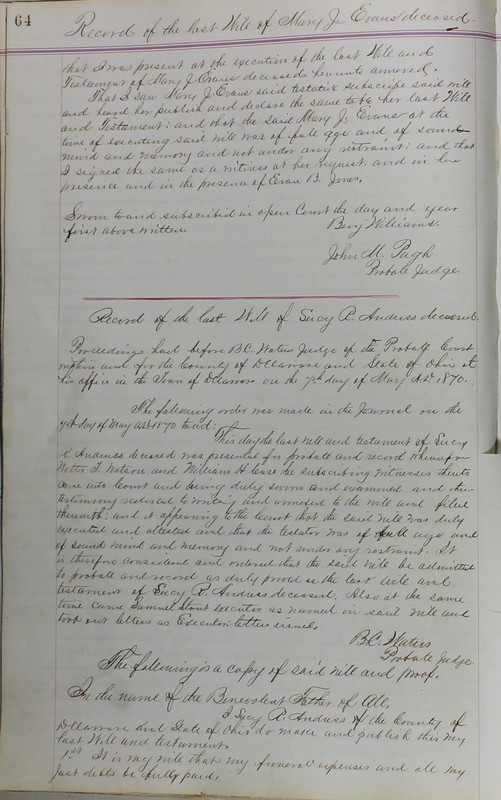 64
Record of the last Will of Mary J. Evans deceased.
that I was present at the execution of the last Will and
Testament of Mary J. Evans deceased hereunto annexed.
That I saw Mary J. Evans said testatrix subscribe said will
and heard her publish and declare the same to be her last Will
and Testament: and that the said Mary J. Evans at the
time of executing said will was of full age and of sound
mind and memory and not under any restraint: and that
I signed the same as a witness at her request and in her
presence and in the presence of Evan B. Jones.
Sworn to and subscribed in open Court the day and year
first above written
Benj Williams.
John M. Pugh
Probate Judge
Record of the last Will of Lucy R. Andress deceased.
Proceedings had before B.C. Waters Judge of the Probate Court
within and for the County of Delaware and State of Ohio at
his office in the Town of Delaware on the 7th day of May A.D. 1870.
The following order was made in the Journal on the
7th day of May AD 1870 to wit:
This day the last will and testament of Lucy
R Andress deceased was presented for probate and record whereupon
Watson and William H Case the subscribing witnesses thereto
came into Court and being duly sworn and examined and their
testimony reduced to writing and annexed to the will and filed
therewith: and it appearing to the Court that the said Will was duly
executed and attested and that the testator was of full age and
of sound mind and memory and not under any restraint. It
is therefore considered and ordered that the said will be admitted
to probate and record as duly proved as the last will and
testament of Lucy R. Andress deceased. Also at the same
time came Samuel Stout executor as named in said will and
took out letters as Executor letters issued.
B.C. Waters
Probate Judge
The following is a copy of said will and proof.
In the name of the Benevolent Father of All.
I Lucy R. Andress of the County of
Delaware and State of Ohio do make and publish this my
last Will and testament.
1st It is my will that my funeral expenses and all my
Just debts be fully paid.